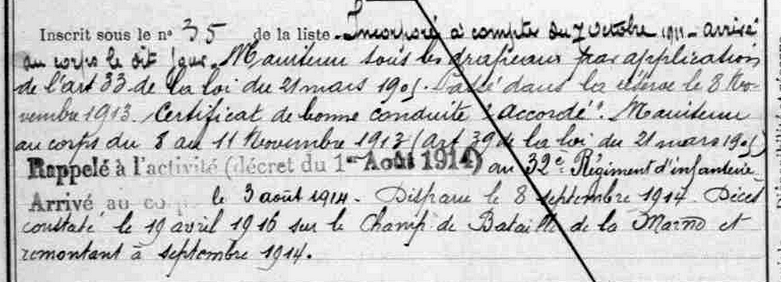 Inscrit sous le n° 35 de la liste. Incorporé à compter du 7 octobre 1911 - arrivé
au corps le dit jour. Maintenu sous les drapeaux par application
de l'art 33 de la loi du 21 mars 1905. Passé dans la réserve le 8 No-
vembre 1913. Certificat de bonne conduite "accordé". Maintenu
au corps du 8 au 11 Novembre 1913 (art 39 de la loi du 21 mars 1905)
Rappelé à l'activité (décret du 1er Août 1914) au 32e Régiment d'infanterie
Arrivé au corps le 3 août 1914. Disparu le 8 septembre 1914. Décès
constaté le 19 avril 1916 sur le Champ de Bataille de la Marne et
remontant à septembre 1914.